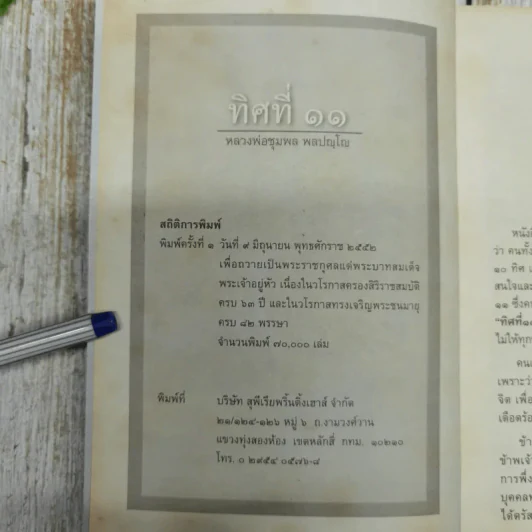 ทิศที่ ๑๑
หลวงพ่อชุมพล พลปญฺโญ
สถิติการพิมพ์
พิมพ์ครั้งที่ ๑ วันที่ ๙ มิถุนายน พุทธศักราช ๒๕๕๒
เพื่อถวายเป็นพระราชกุศลแด่พระบาทสมเด็จ
พระเจ้าอยู่หัว เนื่องในวโรกาสครองสิริราชสมบัติ
ครบ ๖๓ ปี และในวโรกาสทรงเจริญพระชนมายุ
ครบ ๘๒ พรรษา
จำนวนพิมพ์ ๗๐,๐๐๐ เล่ม
พิมพ์ที่ บริษัท สุพีเรียพริ้นติ้งเฮาส์ จำกัด
๒๑/๑๒๔-๑๒๖ หมู่ ๖ ถ.งามวงศ์วาน
แขวงทุ่งสองห้อง เขตหลักสี่ กทม. ๑๐๒๑๐
โทร. ๐ ๒๙๕๔ ๐๕๗๖-๘
ว่า คนทั้ง
๑๐ ทิศ
สนใจและ
๑๑ ซึ่งคร
"ทิศที่๑
ไม่ให้ทุก
คน
เพราะว่า
จิต เพื่อ
เดือดร้อ
ข้า
ข้าพเจ้
การพึ่ง
บุคคล
ได้ตรัส